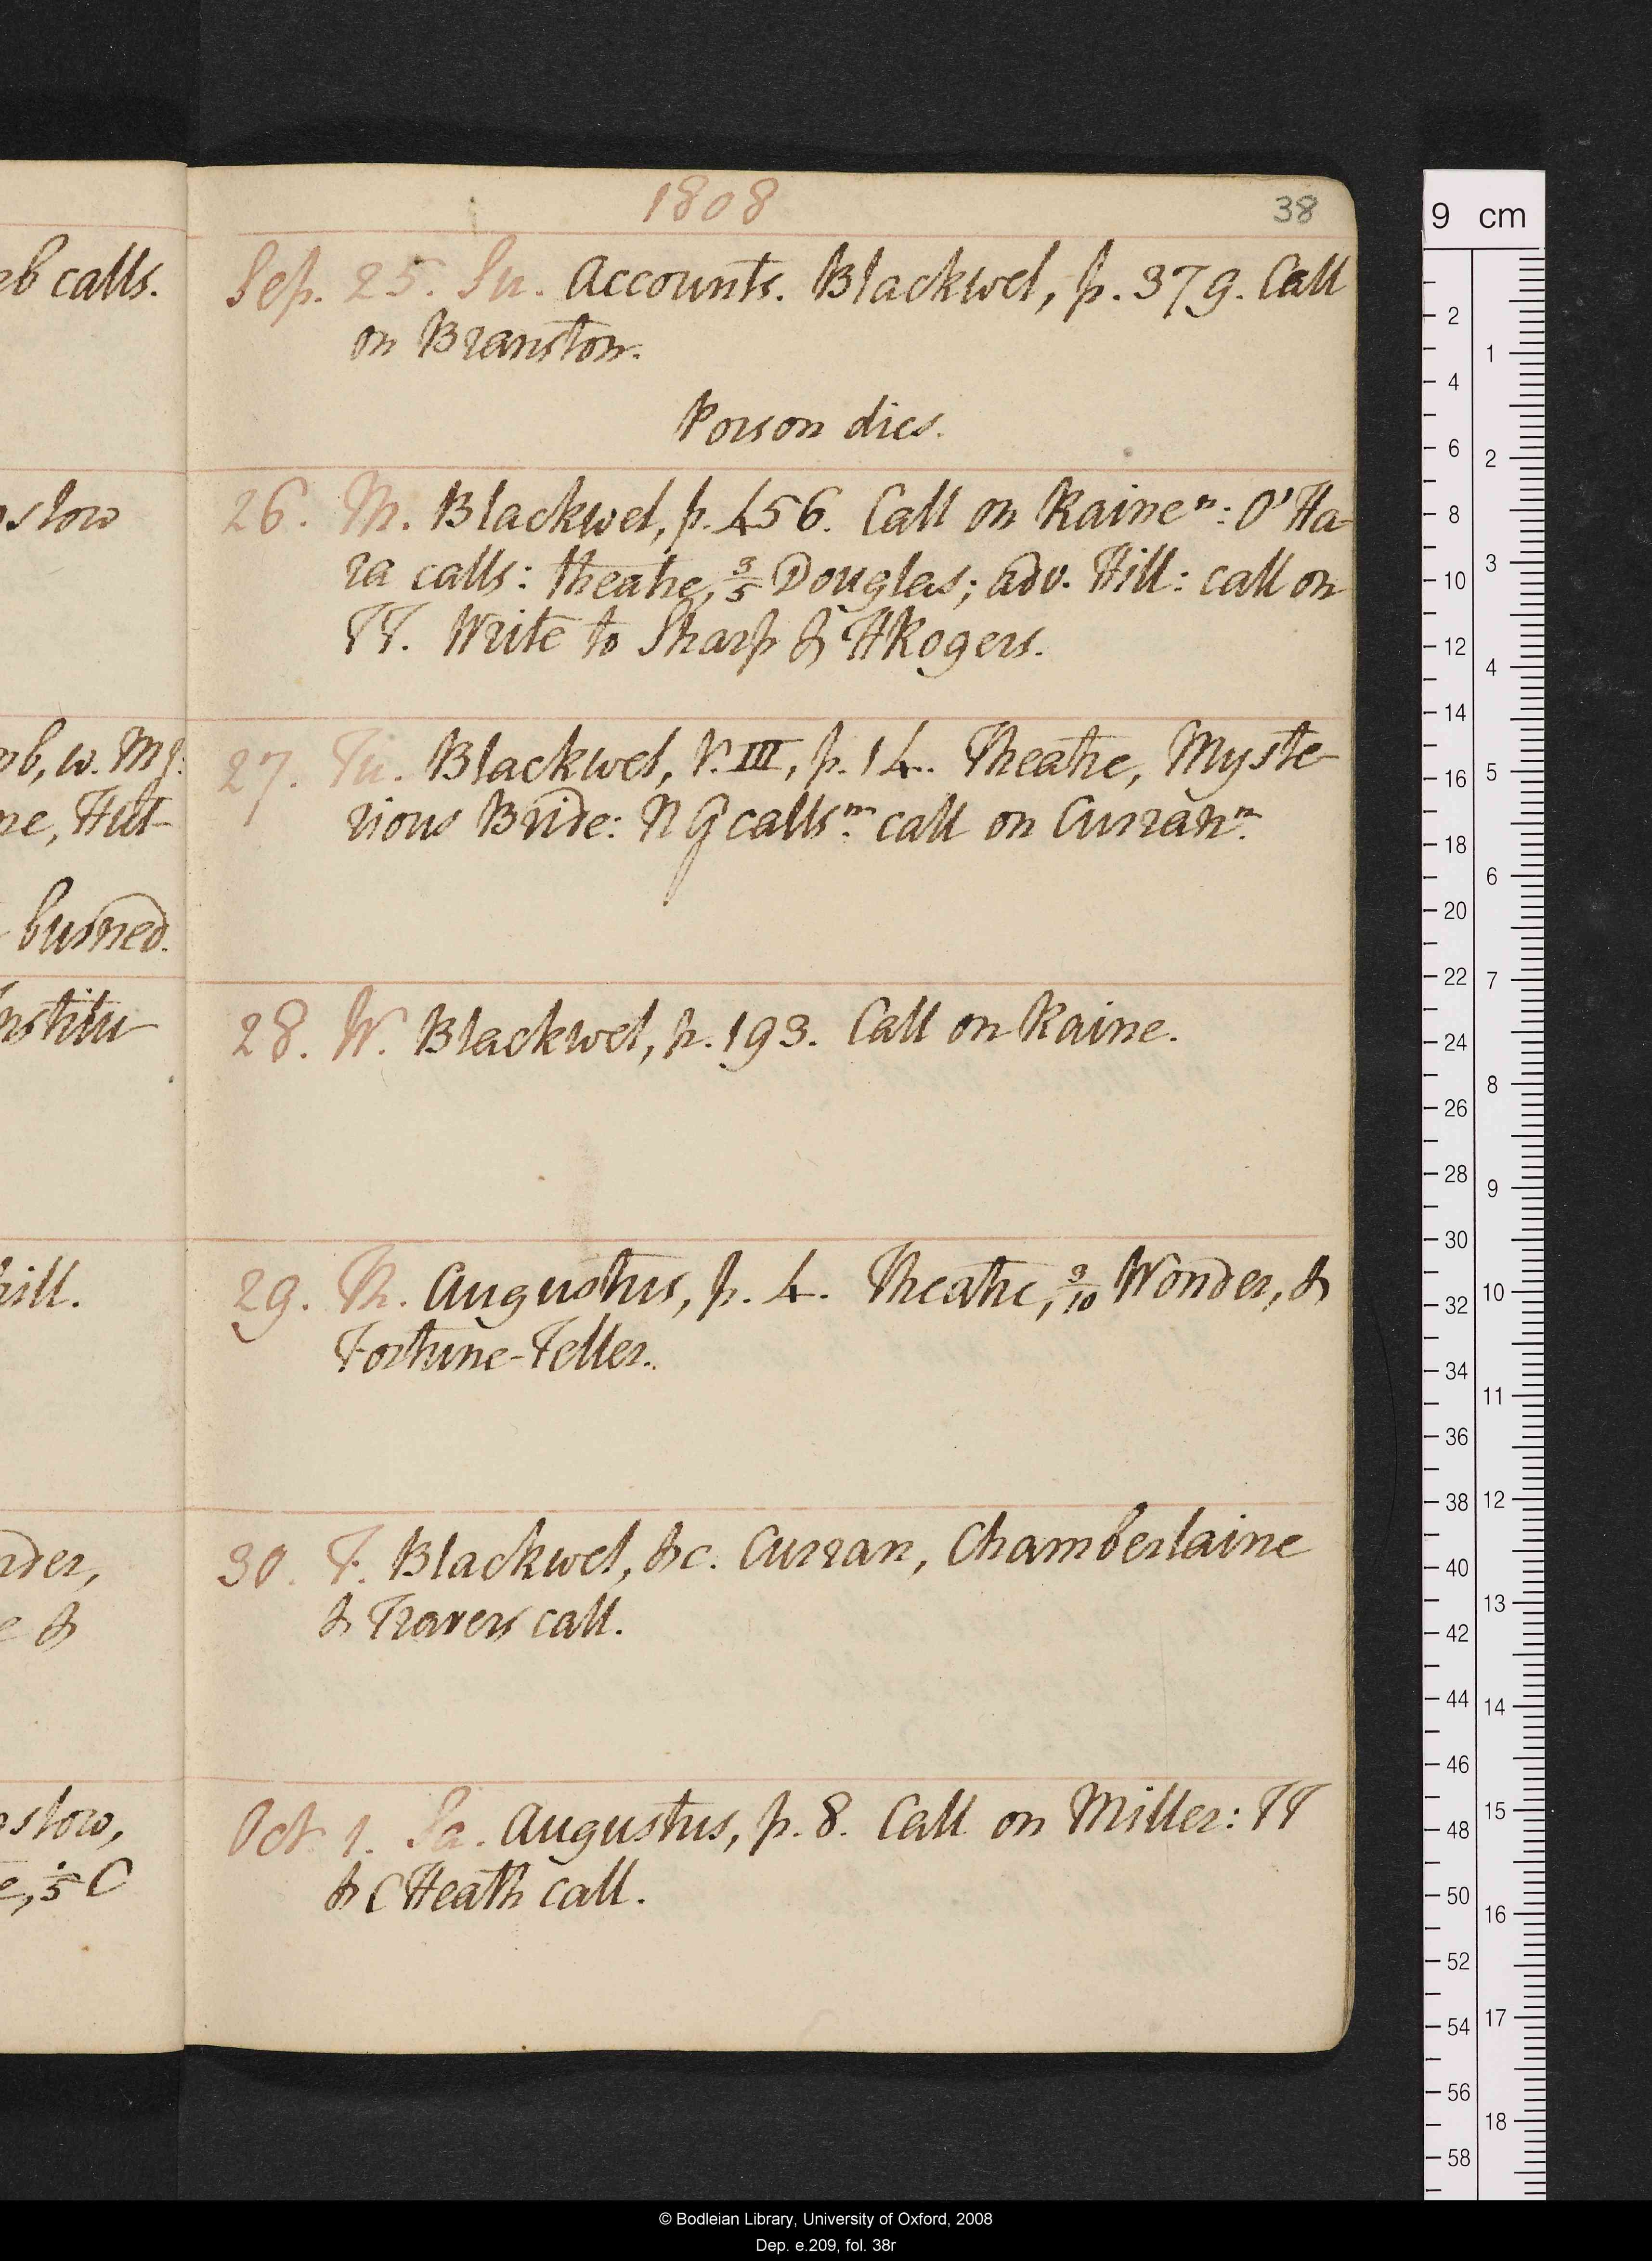 1808
38
eb calls.
Sep. 25. Su. Accounts. Blackwel, p. 379. Call
on Branston.
Porson dies.
26. M. Blackwel, p. 456. Call on Raine n: O'Ha-
slow
ra calls: theatre, 3/5 Douglas; adv. Hill: call on
TT. Write to Sharp & HRogers.
mb, w. MJ:
27. Tu. Blackwel, V. III, p. 14. Theatre, Myste-
ne, Hut-
rious Bride: N G calls m: call on Curran n.
burned.
28. W. Blackwel, p. 193. Call on Raine.
nstitu-
29. Th. Augustus, p. 4. Theatre, 3/10 Wonder, &
hill.
Fortune-Teller.
30. F. Blackwel, &c. Curran, Chamberlaine
nder,
& Travers call.
e &
Oct. 1. Sa. Augustus, p. 8. Call on Miller: TT
slow,
& C Heath call.
e, 1/5 C
9 cm
2 4 6 8 10 12 14 16 20 22 24 26 28 30 32 34 36 38 40 42 44 46 48 50 52 54 56 58
1 2 3 4 5 6 7 8 9 10 11 12 13 14 15 16 17 18
© Bodleian Library, University of Oxford, 2008
Dep. e.209, fol. 38r